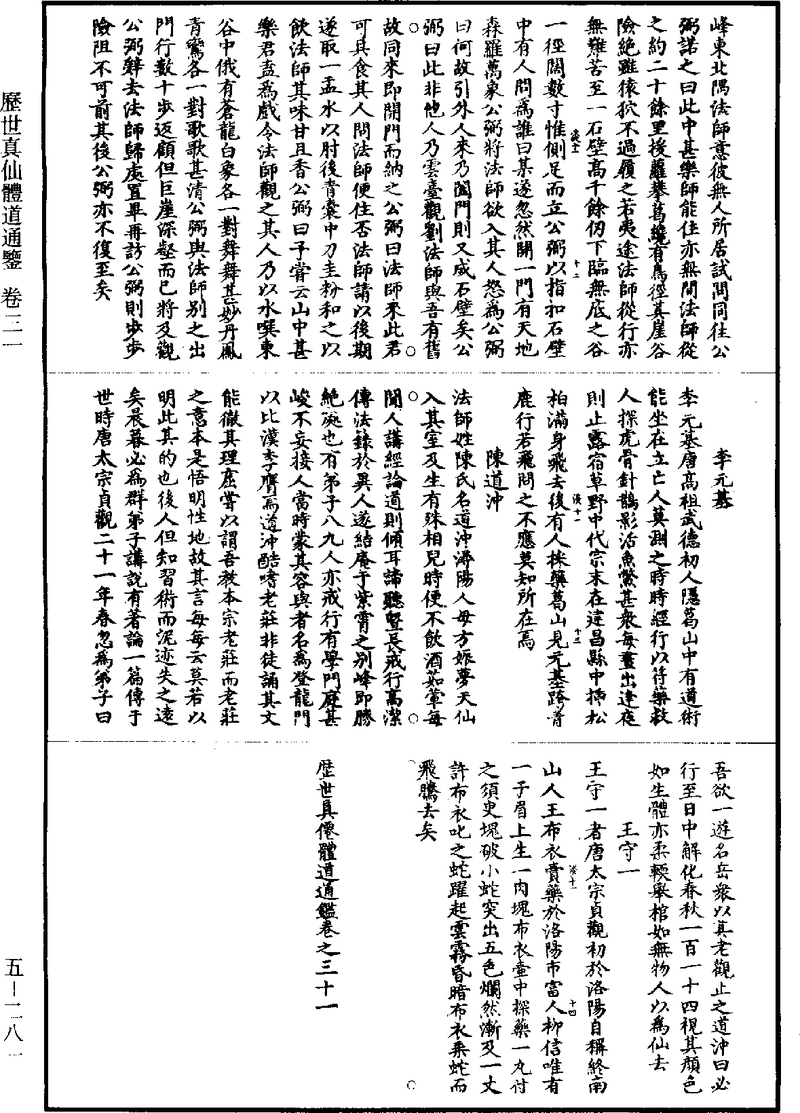 歷世真仙體道通鑒　卷三一
五－二八一
峰東北隅法師意彼無人所居試問同往公
弼諾之曰此中甚樂師能住亦無閒法師從
之約二十餘里捘蘿攀葛纔有鳥徑其崖谷
險絕雖猿狖不過履之若夷途法師從行亦
無難苦至一石壁高千餘仞下臨無底之谷
一徑闊數寸惟側足而立公弼以指扣石壁
中有人問為誰曰某遂忽然開一門有天地
森羅萬象公弼將法師欲入其人怒為公弼
曰何故引外人來乃闔門則又成石壁矣公
弼曰此非他人乃雲臺觀劉法師與吾有舊
故同來即開門而納之公弼曰法師來此君
可具食其人問法師便住否法師請以後期
遂取一盂水以肘後青囊中刀圭粉和之以
飲法師其味甘且香公弼曰子嘗云山中甚
樂君盍為戲令法師觀之其人乃以水噀東
谷中俄有蒼龍白象各一對舞舞甚妙丹鳳
青鸞各一對歌歌甚清公弼與法師別之出
門行數十步迈顧但巨崖深壑而已將及觀
公弼辭去法師歸處置畢再訪公弼則步步
險阻不可前其後公弼亦不復至矣
李元基
李元基唐高祖武德初人隱葛山中有道術
能坐在立亡人莫測之時時經行以符藥救
人探虎骨針鵲影活魚鱉甚衆每晝出逢夜
則止露宿草野中代宗末在建昌縣中插松
柏滿身飛去後有人採藥葛山見元基跨青
鹿行若飛問之不應莫知所在焉
陳道沖
法師姓陳氏名道沖潯陽人母方娠夢天仙
入其室及生有殊相兒時便不飲酒茹葷每
聞人講經論道則傾耳諦聽曁長戒行高潔
傳法籙於異人遂結庵于紫霄之別峰即勝
絕處也有弟子八九人亦戒行有學門庭甚
峻不妄接人當時蒙其容與者名為登龍門
以比漢李膺焉道沖酷嗜老莊非徒誦其文
能徹其理窟嘗以謂吾教本宗老莊而老莊
之意本是悟明性地故其言每每云莫若以
明此其的也後人但知習術而泥迹失之遠
矣晨暮必為群弟子講說有著論一篇傳于
世時唐太宗貞觀二十一年春忽為弟子曰
吾欲一遊名岳衆以其老觀止之道沖曰必
行至日中解化春秋一百一十四視其顏色
如生體亦柔輭舉棺如無物人以為仙去
王守一
王守一者唐太宗貞觀初於洛陽自稱終南
山人王布衣賣藥於洛陽市富人柳信唯有
一子眉上生一肉塊布衣壼中探藥一丸付
之須臾塊破小蛇突出五色爛然漸及一丈
許布衣叱之蛇躍起雲霧昏暗布衣乘蛇而
飛騰去矣
歷世真僊體道通鑑卷之三十一